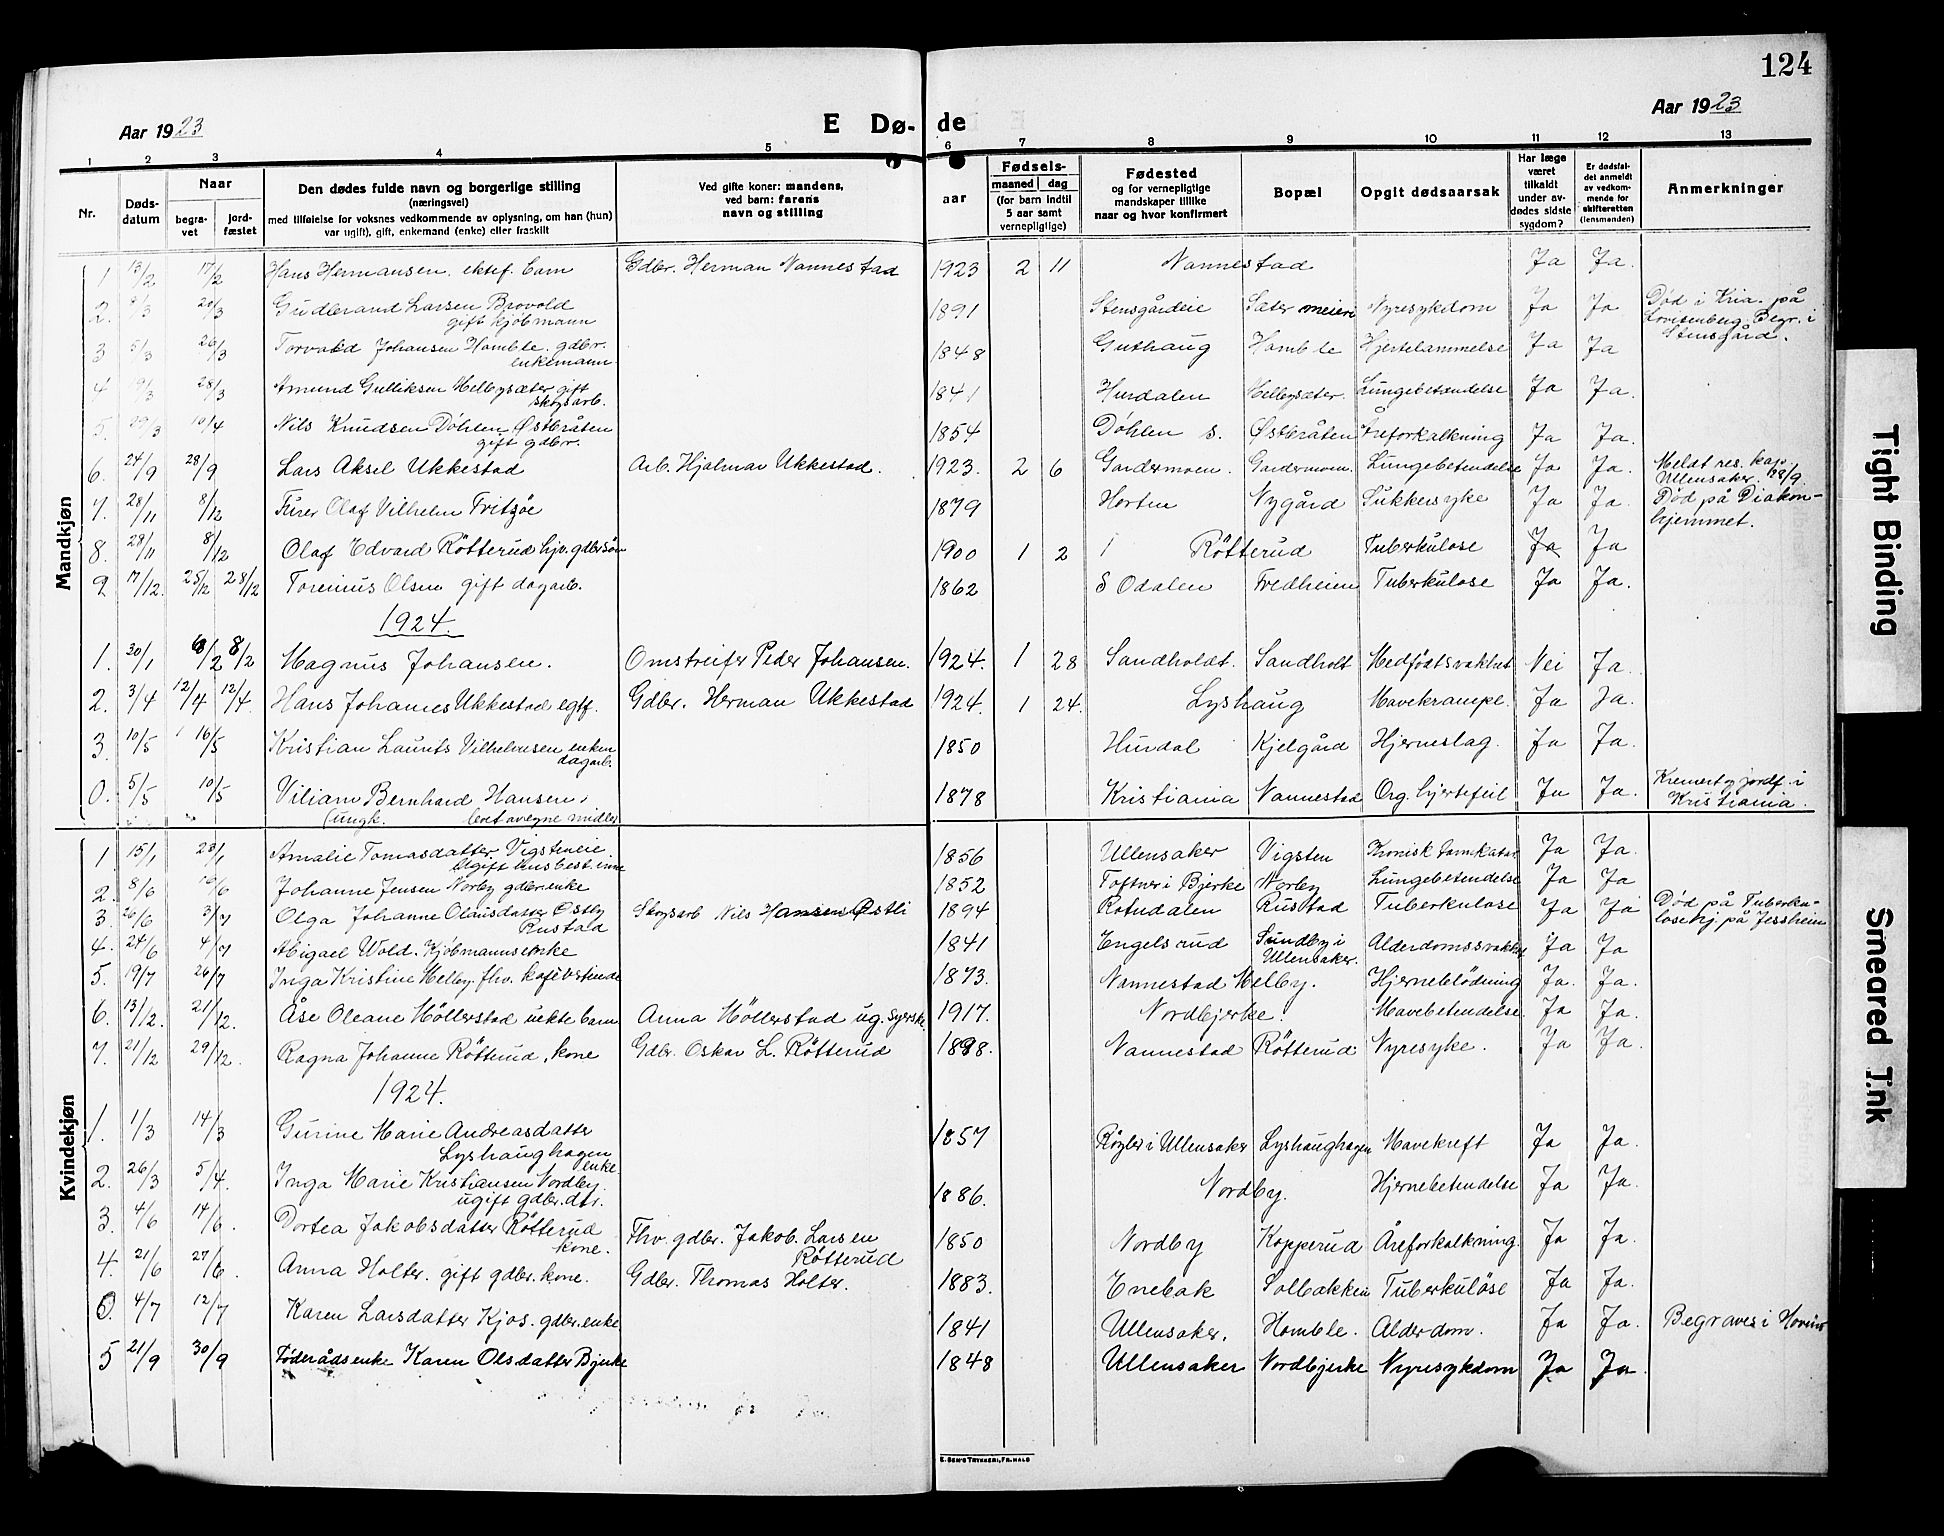 124
Aar 1923
E Dø-de
Aar 1923
1 2 3 4 5 6 7 8 9 10 11 12 13
Nr.
Døds-datum
Naar
begra-vet
jord-fæstet
Den dødes fulde navn og borgerlige stilling
(næringsvei)
med tilføielse for voksnes vedkommende av oplysning, om han (hun)
var ugift), gift, enkemand (enke) eller fraskilt
Ved gifte koner: mandens,
ved barn: farens
navn og stilling
aar
Fødsels-
maaned dag
(for barn indtil
5 aar samt
vernepligtige)
Fødested
og for vernepligtige
mandskaper tillike
naar og hvor konfirmert
Bopæl
Opgit dødsaarsak
Har læge
været
tilkaldt
under av-
dødes sidste
sygdom?
Er dødsfal-
det anmeldt
av vedkom-
mende for
skifteretten
(lensmanden)
Anmerkninger
Mandkjøn
1 13/2 17/2 Hans Hermansen. ektef. barn Gdbr. Herman Nannestad 1923 2 11 Nannestad Ja Ja.
2. 9/3 20/3 Gudbrand Larsen Brovold gift kjøbmann 1891 Stensgårdeie Sæter meieri Nyresykdom Ja Ja Død i Kria. på Lovisenberg. Begr. i Stensgård.
3 5/3 26/3 Torvald Johansen Homble. gdbr. enkemann 1848 Guthaug Homble Hjertelammelse Ja Ja
4 19/3 28/3 Amund Gulliksen Helbysæter gift skogsarb. 1841 Hurdalen Helbysæter. Lungebetendelse Ja Ja.
5. 29/3 10/4 Nils Knudsen Döhlen Østbråten gift gdbr. 1854 Döhlen s. Østbråten Åreforkalkning Ja Ja.
6. 24/9 28/9 Lars Aksel Ukkestad Arb. Hjalmar Ukkestad. 1923. 2 6 Gardermoen. Gardermoen. Lungebetendelse Ja Ja. Meldt res. kap. Ullensaker. 28/9.
7. 28/11 8/12 Furer Olaf Vilhelm Fritzöe 1879 Horten Nygård Sukkersyke Ja Ja. Död på Diakon-hjemmet.
8. 28/11 8/12 Olaf Edvard Rötterud hjv. gdbrsön 1900 1 2 Rötterud Tuberkulose Ja Ja
9 17/12. 25/12 28/12 Torenius Olsen gift dagarb. 1862 S Odalen Fredheim Tuberkulose Ja Ja.
1924.
1. 30/1 8/2 8/2 Magnus Johansen. Omstreifer Peder Johansen. 1924. 1 28 Sandholdt. Sandholt Medfödt svakhet Nei Ja.
2. 3/4 12/4 12/4. Hans Johannes Ukkestad egtf. Gdbr. Herman Ukkestad 1924. 1 24. Lyshaug Mavekrampe. Ja Ja.
3. 10/5 16/5 Kristian Laurits Vilhelmsen enkem dagarb. 1850 Hurdal Kjelgård Hjerneslag. Ja Ja.
0. 5/5 10/5 Viliam Bernhard Hansen, (ungk. levet av egne midler 1878 Kristiania Nannestad Org. hjertefeil Ja Ja. Kremert og jordf. i Kristiania.
Kvindekjøn
1 15/1 23/1 Amalie Tomasdatter Vigsteneie Ugift husbest.inne 1856 Ullensaker Vigsten Kronisk tarmkatar Ja Ja.
2. 8/6 16/6 Johanne Jensen Norby gdbr.enke 1852 Toftner i Bjerke Norby Lungebetendelse Ja Ja
3. 26/6 3/7 Olga Johanne Olausdatter Østby Rustad Skogsarb Nils Hansen Østli 1894 Rotndalen Rustad Tuberkulose Ja Ja Död på Tuberku-losehj på Jessheim
4. 24/6 4/7 Abigael Wold. Kjöbmannsenke 1841 Engelsrud Sundby i Ullensaker. Alderdomssvakhet Ja Ja
5. 19/7 26/7 Inga Kristine Melby. fhv. kafévertinde 1873. Nannestad Melby. Hjerneblödning Ja. Ja.
6. 13/12. 21/12. Åse Oleane Möllerstad uekte barn Anna Möllerstad ug. syerske. 1917. Nordbjerke. Mavebetendelse. Ja Ja.
7. 21/12 29/12. Ragna Johanne Rötterud, kone Gdbr. Oskar L. Rötterud 1898. Nannestad Rötterud Nyresyke. Ja Ja.
1924.
1. 1/3 14/3 Gurine Marie Andreasdatter Lyshaughagen enke. 1857 Røgler i Ullensaker Lyshaughagen Mavekreft Ja Ja.
2. 26/3 5/4. Inga Marie Kristiansen Nordby. ugift gdbr.dtr. 1886. Nordby. Hjernebetendelse Ja Ja.
3. 4/6 14/6. Dortea Jakobsdatter Rötterud kone. Fhv. gdbr. Jakob Larsen Rötterud 1850 Nordby Kopperud Åreforkalkning. Ja Ja.
4. 21/6 27/6. Anna Holter. gift gdbr. kone. Gdbr. Thomas Holter. 1883. Enebak Solbakken Tuberkulöse Ja Ja.
0. 4/7 12/7 Karen Larsdatter Kjos. gdbr. enke. 1841 Ullensaker. Homble. Alderdom. Ja Ja. Begraves i Hovin
5 21/9 30/9 Föderådsenke Karen Olsdatter Bjerke 1848 Ullensaker Nordbjerke Nyresykdom Ja Ja.
E. SEM'S TRYKKERI, FR.HALD
Tight Binding
Smeared Ink